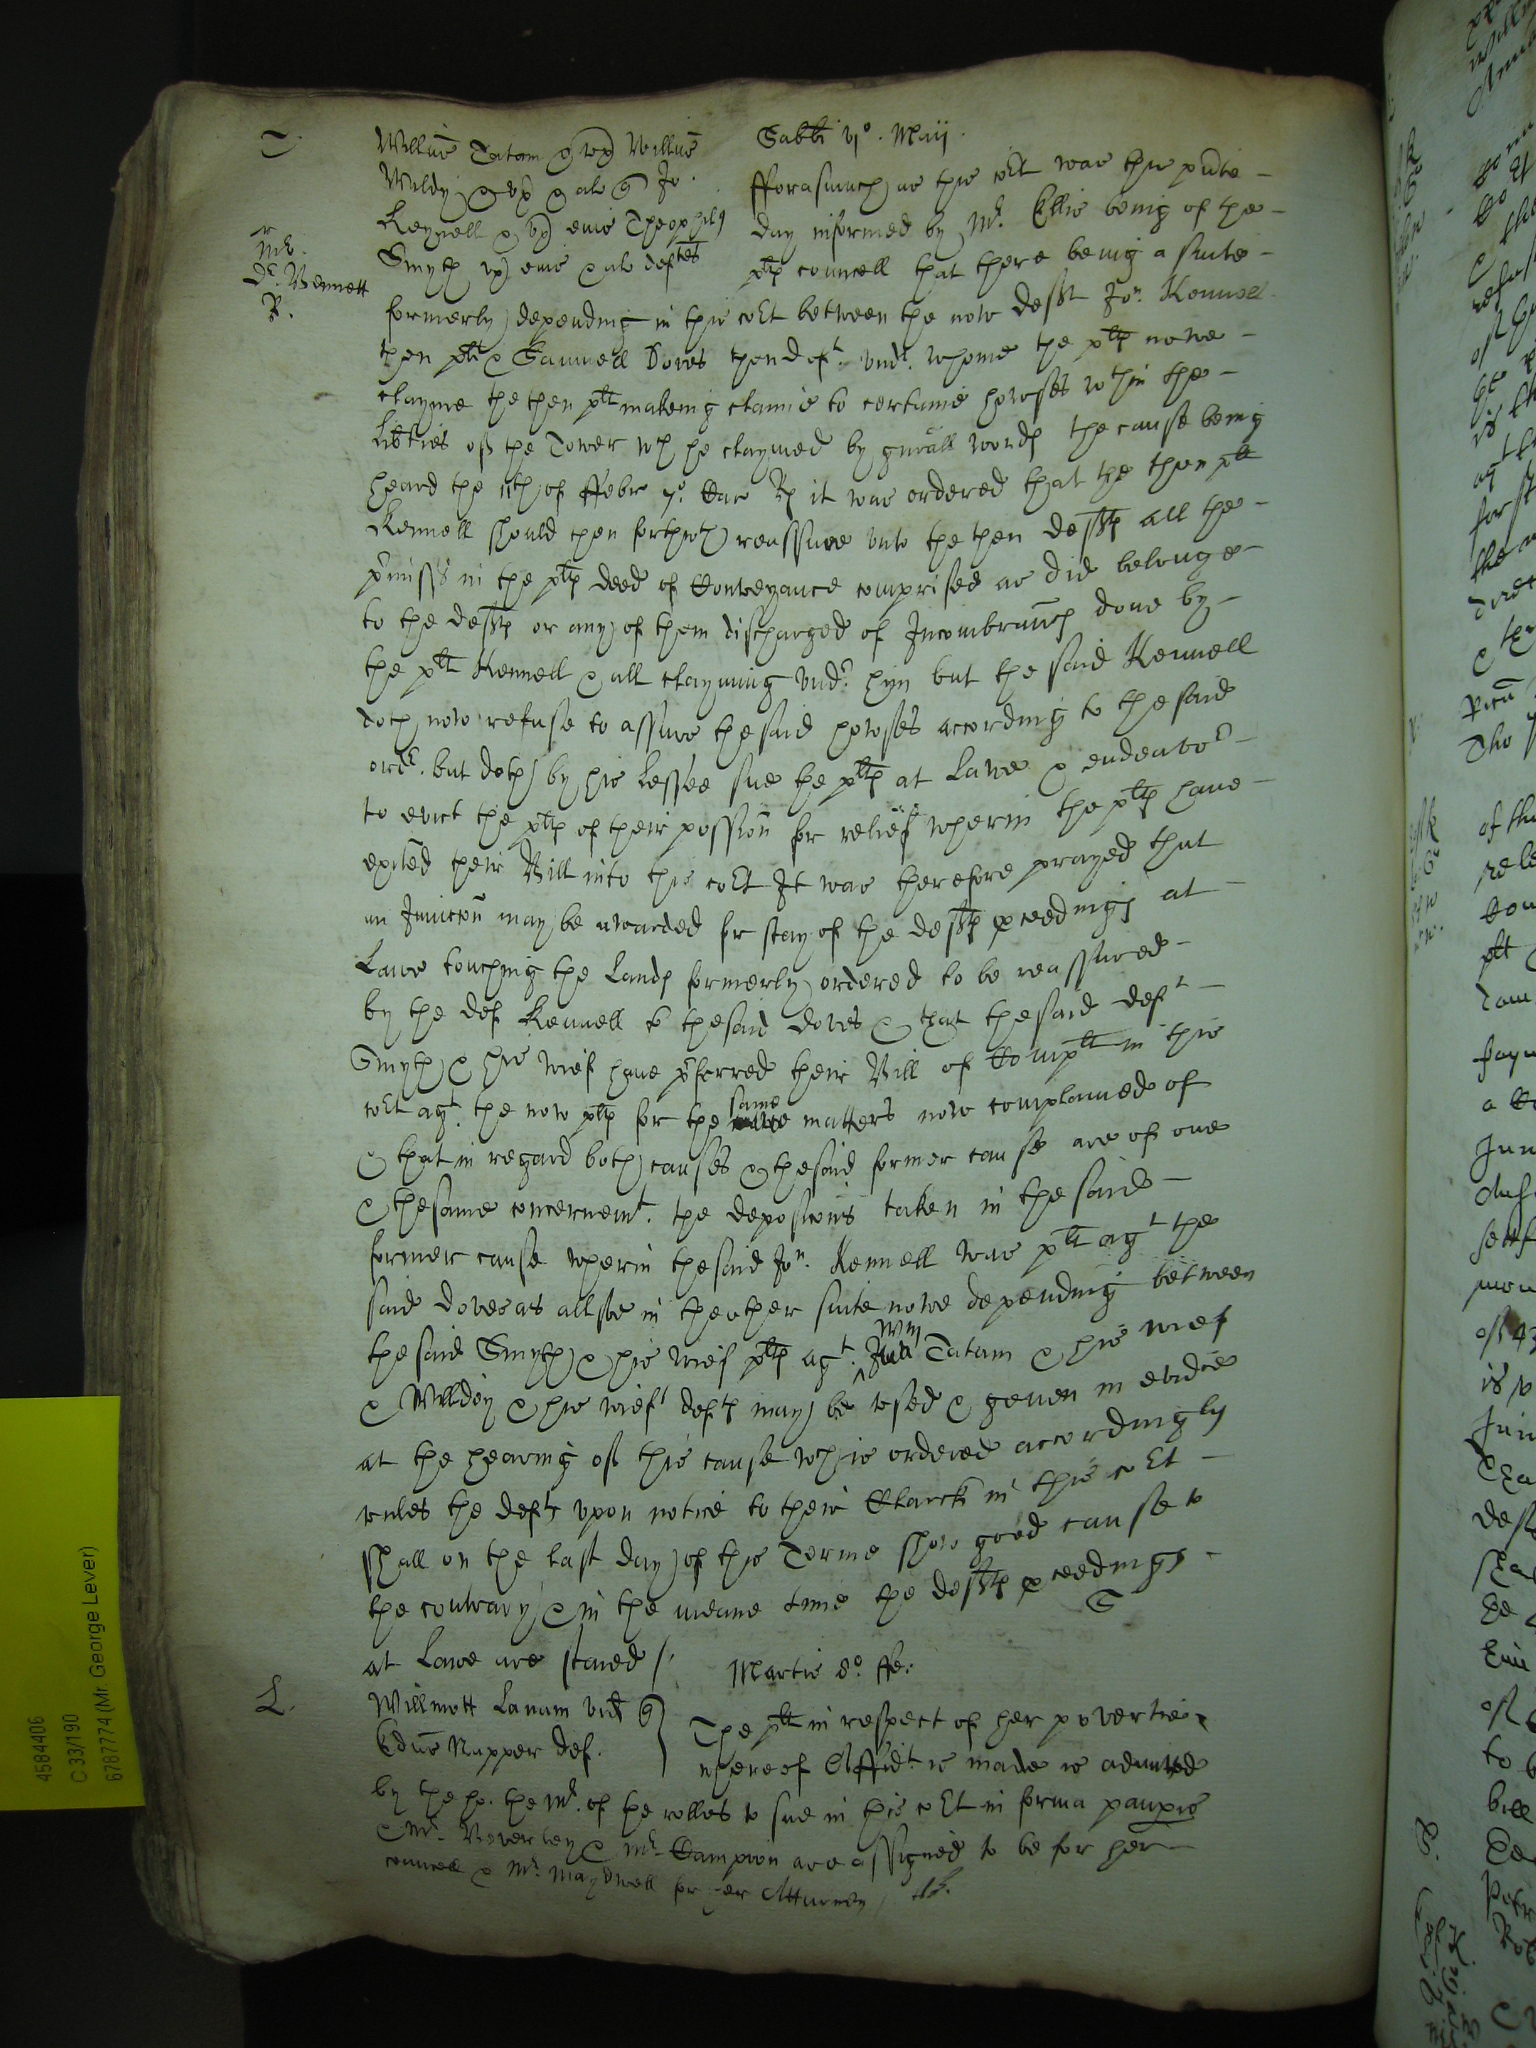 T.
Willm̄s Tatam & ux̄ Willm̄s
Wildey & ux̄ & al q̄ Jo.
Kennell & ux̄ eius Theophilus
Smyth ux̄ eius & al deftes
Sabbti vjo. Maij.
mr.
Dr. Bennett
R.
fforasmuch as this co͞rt was this p͞nte
day informed by Mr. Ellis being of the
plts councell that there being a suite
formerly depending in this co͞rt between the now deft Jon. Kennell
then plt & Samuell Doves then deft. undr. whome the plts nowe
clayme the then plt makeing claime to certaine howses wthin the
lib̄ties of the Tower wch he claymed by gen͞all words the cause being
heard the 11th of ffebr 7o. Car Rs it was ordered that the then plt
Kennell should then forthwth reassure unto the then defts all the
p͞miss̄s in the plts deed of Conveyance comprised as did belonge
to the defts or any of them discharged of Incombraunces done by
the plt Kennell & all clayming undr. him but the said Kennell
doth now refuse to assure the said howses according to the said
ordr. but doth by his Lessee sue the plts at Lawe & endeavor
to evict the plts of their possion̄ for releif wherin the plts have
exited their Bill into this co͞rt It was therefore prayed that
an Iniuncc͞on may be awarded for stay of the defts p͞ceedings at
Lawe touching the Lands formerly ordered to be reassured
by the def Kennell to the said Doves & that the said deft
Smyth & his wief have p͞ferred their Bill of Complt in this
co͞rt agt. the now plts for the same matters now complained of
& that in regard both causes & the said former cause are of one
& the same concernemt. the deposic͞ons taken in the said
former cause wherin the said Jon. Kennell was plt agt the
said Doves as allsoe in the other suite nowe depending between
the said Smyth & his wief plts agt. Wm Tatam & his wief
& Willdey & his wief defts may be used & geven in evidce
at the hearing of this cause wch is ordered accordingly
unles the defts upon notice to their Clarck in this co͞rt
shall on the last day of this Terme shew good cause to
the contrary & in the meane time the defts p͞ceedings
at Lawe are staied /.
G
Martis 8o. ffe:
L.
Willmott Lanam vid q̄
Edūs Napper def.
The plt in respect of her povertie
whereof Affidt. is made is admitted
by the ho. the Mr. of the rolles to sue in this co͞rt in forma paup͞is
& Mr. Beverley & Mr. Campion are assigned to be for her
councell & Mr. Maydwell for her Atturney /
4584406
C 33/190
6787774 (Mr. George Lever)